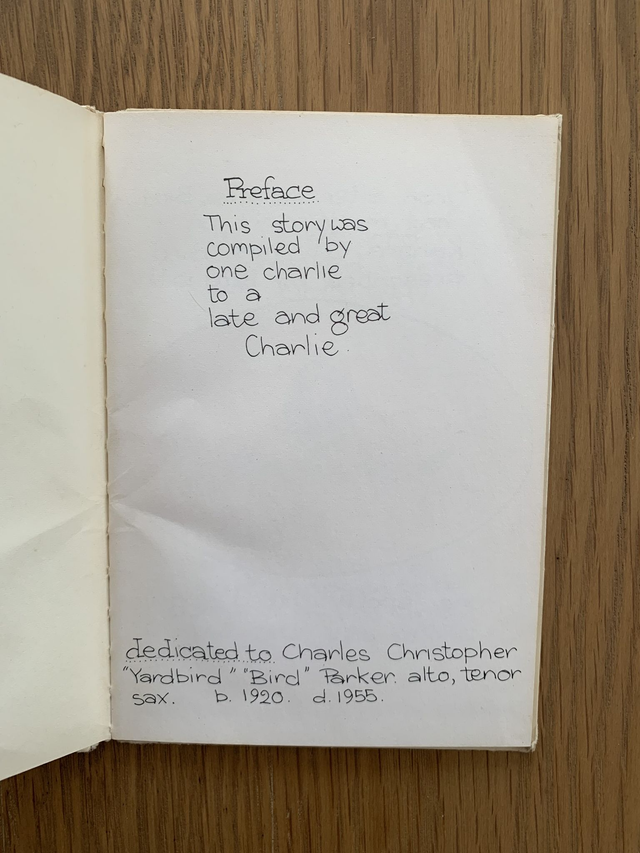 Preface
This story was
compiled by
one charlie
to a
late and great
Charlie.
dedicated to Charles Christopher
"Yardbird" "Bird" Parker. alto, tenor
sax. b. 1920. d. 1955.